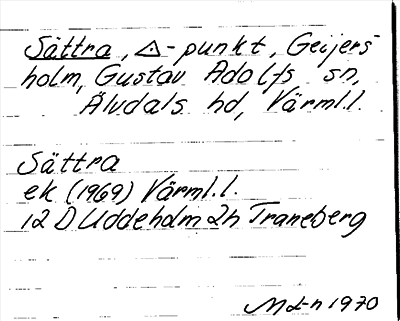 Sättra, △-punkt, Geijers-
holm, Gustav Adolfs sn,
Älvdals hd, Värml.l.
Sättra
ek (1969) Värml.l.
12 D Uddeholm 2h Traneberg
Md-n 1970